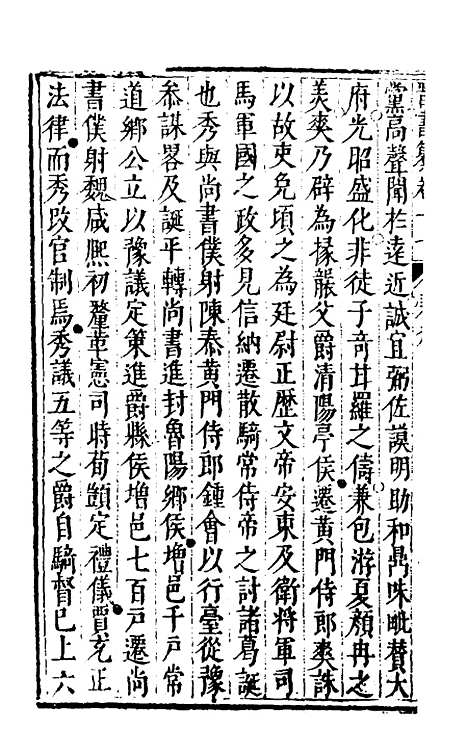 黨高聲聞於遠近誠宜弼佐謨明助和鼎味毗贊大
府光昭盛化非徒子竒甘羅之儔兼包游夏顏冉之
美爽乃辟為掾襲父爵清陽亭侯遷黃門侍郎爽誅
以故吏免頃之為廷尉正歷文帝安東及衛將軍司
馬軍國之政多見信納遷散騎常侍帝之討諸葛誕
也秀與尚書僕射陳泰黃門侍郎鍾會以行臺從豫
叅謀畧及誕平轉尚書進封魯陽鄉侯增邑千戶常
道鄉公立以豫議定策進爵縣侯增邑七百戶遷尚
書僕射魏咸熈初釐革憲司時荀顗定禮儀賈充正
法律而秀改官制焉秀議五等之爵自騎督已上六